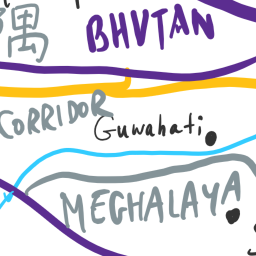 隅
BHUTAN
CORRIDOR
Guwahati
MEGHALAYA